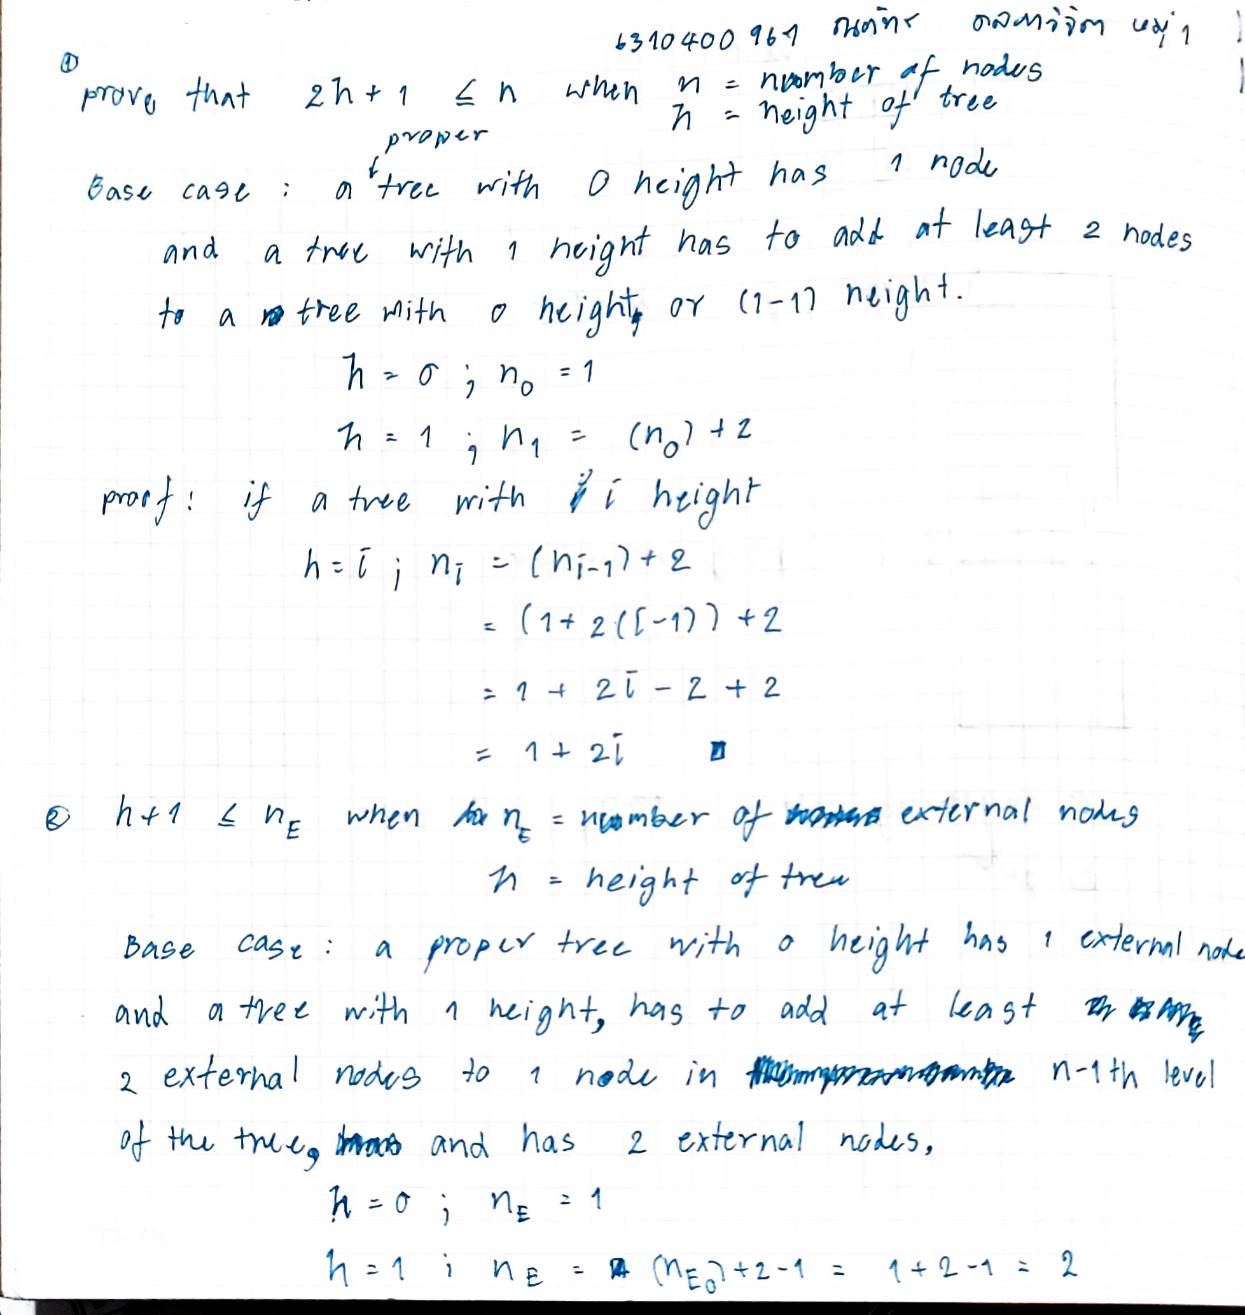 6310400967 หมู่ 1
① prove that 2h+1 ≤ n when n = number of nodes
h = height of tree
proper
Base case : a tree with 0 height has 1 node
and a tree with 1 height has to add at least 2 nodes
to a tree with 0 height, or (1-1) height.
h = 0 ; n₀ = 1
h = 1 ; n₁ = (n₀) + 2
proof : if a tree with i height
h = i ; nᵢ = (nᵢ₋₁) + 2
= (1 + 2(i-1)) + 2
= 1 + 2i - 2 + 2
= 1 + 2i
② h+1 ≤ n_E when n_E = number of external nodes
h = height of tree
Base case : a proper tree with 0 height has 1 external node
and a tree with 1 height, has to add at least
2 external nodes to 1 node in n-1th level
of the tree, and has 2 external nodes,
h = 0 ; n_E = 1
h = 1 ; n_E = (n_E₀) + 2 - 1 = 1 + 2 - 1 = 2